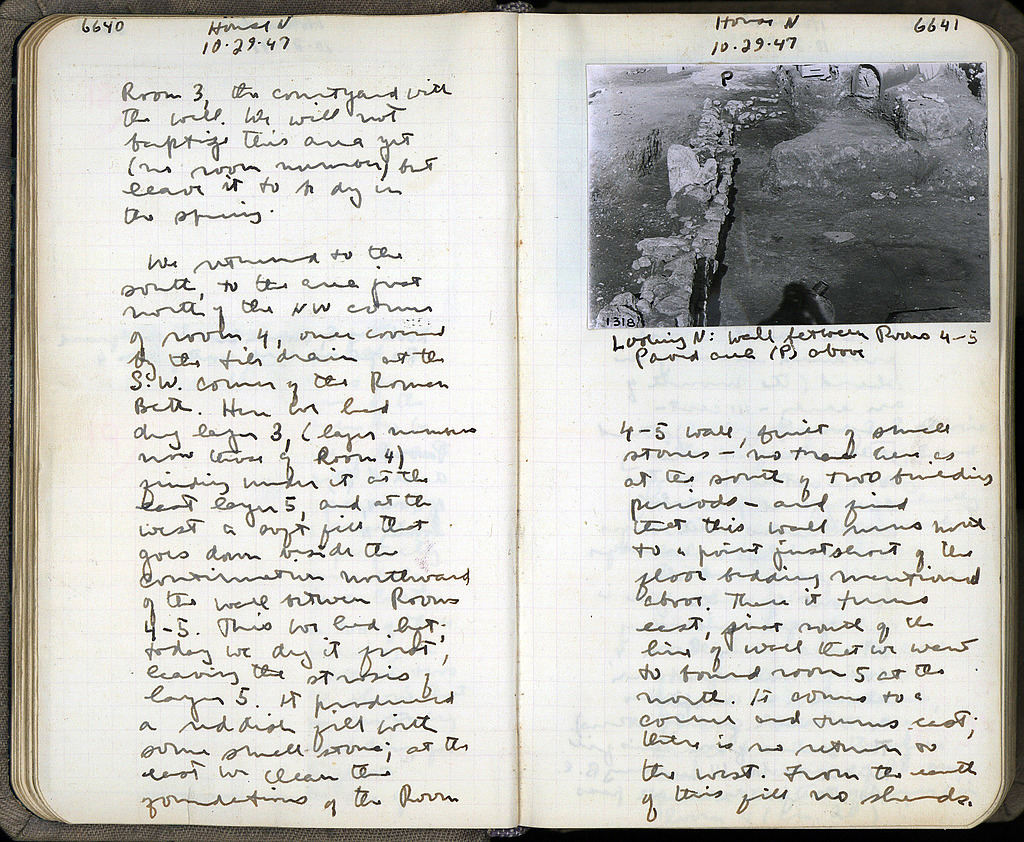 6640
House N
10·29·47
Room 3, the courtyard with
the well. We will not
baptize this area yet
(no room number) but
leave it to be dug in
the spring.
We returned to the
south, to the area just
north of the NW corner
of room 4, once covered
by the tile drain at the
S.W. corner of the Roman
Bath. Here we had
dug layer 3, (layer numbers
now those of Room 4)
finding under it at the
east layer 5, and at the
west a soft fill that
goes down beside the
continuation northward
of the wall between Rooms
4-5. This we had left;
today we dig it first,
leaving the strosis of
layer 5. It produced
a reddish fill with
some small stone; at the
east we clean the
foundations of the Room
House N
10·29·47
6641
P
1318
Looking N: wall between Rooms 4-5
Paved area (P) above
4-5 wall, built of small
stones – no trace here as
at the south of two building
periods – and find
that this wall runs north
to a point just short of the
floor bedding mentioned
above. There it turns
east, just south of the
line of wall that we want
to bound room 5 at the
north. It comes to a
corner and turns east;
there is no return to
the west. From the earth
of this fill no sherds.